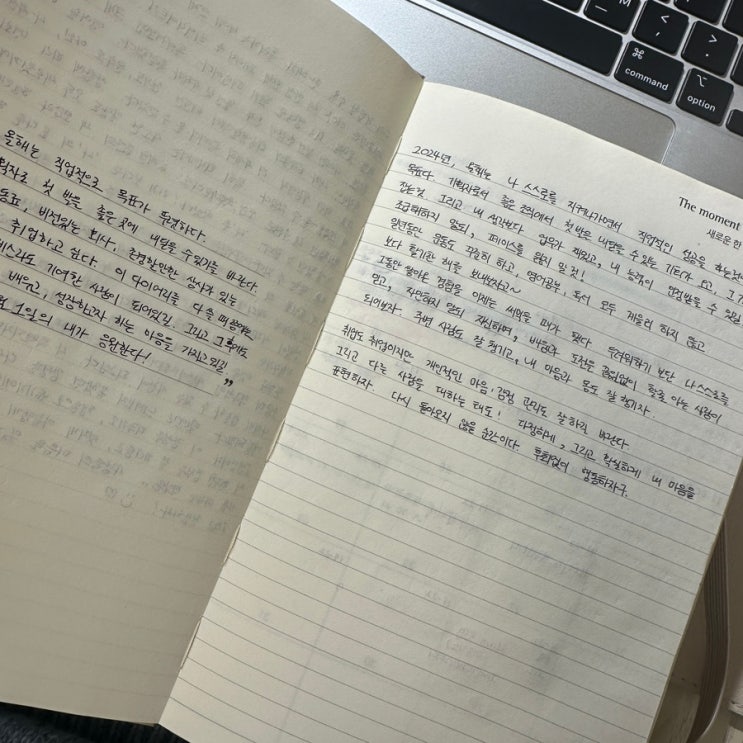 올해는 직업적으로 목표가 뚜렷하다.
첫 발을 좋은 곳에 내딛을 수 있기를 바란다.
비전있는 회사, 존경할만한 상사가 있는
취업하고 싶다. 이 다이어리를 다 쓸 때 쯤에는
기여한 사람이 되어있길. 그리고 그 후에도
배우고, 성장하고자 하는 마음을 가지고 있길
1일의 내가 응원한다!
The moment
새로운 한
2024년, 목표는 나 스스로를 지켜나가면서 직업적인 성공을 하는것
목표다. 기획자로서 좋은 조직에서 첫 발을 내딛을 수 있는 기회가 오고, 그 기
잡는것. 그리고 내 생각보다 업무가 재밌고, 내 능력이 인정받을 수 있길
조급해하지 말되, 페이스를 잃지 말 것!
일년동안 운동도 꾸준히 하고, 영어공부, 독서 모두 게을리 하지 않고
보다 활기찬 해를 보내보자고~
그동안 쌓아온 경험을 이제는 써먹을 때가 됐다. 두려워하기 보단 나 스스로를
믿고, 자만하지 말되 자신하며, 배움과 도전을 끊임없이 할줄 아는 사람이
되어보자. 주변 사람도 잘 챙기고, 내 마음과 몸도 잘 챙기자.
취업도 취업이지만 개인적인 마음·감정 관리도 잘 하길 바란다.
그리고 다른 사람을 대하는 태도! 다정하게, 그리고 확실하게 내 마음을
표현하자. 다시 돌아오지 않을 순간이다. 후회없이 행동하자구.
command
option